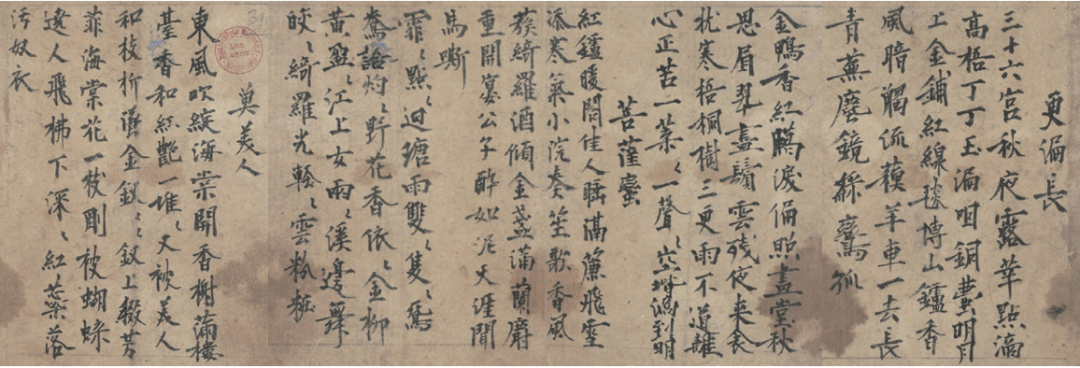 更漏長
三十六宮秋夜露華點滴
高梧丁丁玉漏咽銅壺明月
上金鋪紅線毯博山鑪香
風暗觸流蘇羊車一去長
青蕪塵鏡綵鸞孤
金鴨香紅臈淚偏照畫堂秋
思眉翠盡鬢雲殘夜来長
枕寒梧桐樹三更雨不道離
心正苦一葉〻一聲〻空堦滴到明
菩薩蠻
紅鑪暖閤佳人睡隔簾飛雪
添寒氣小院奏笙歌香風
蔟綺羅酒傾金盞滿蘭麝
重開宴公子醉如泥天涯聞
馬嘶
霏〻點〻迴塘雨雙〻隻〻鴛
鴦語灼〻野花香依〻金柳
黃盈〻江上女兩〻溪邊舞
皎〻綺羅光輕〻雲粉粧
美人
東風吹綻海棠開香榭滿樓
臺香和紅艷一堆〻又被美人
和枝折墜金釵〻釵上綴芳
菲海棠花一枝剛被蝴蝶
遶人飛拂下深〻紅蘂落
污奴衣